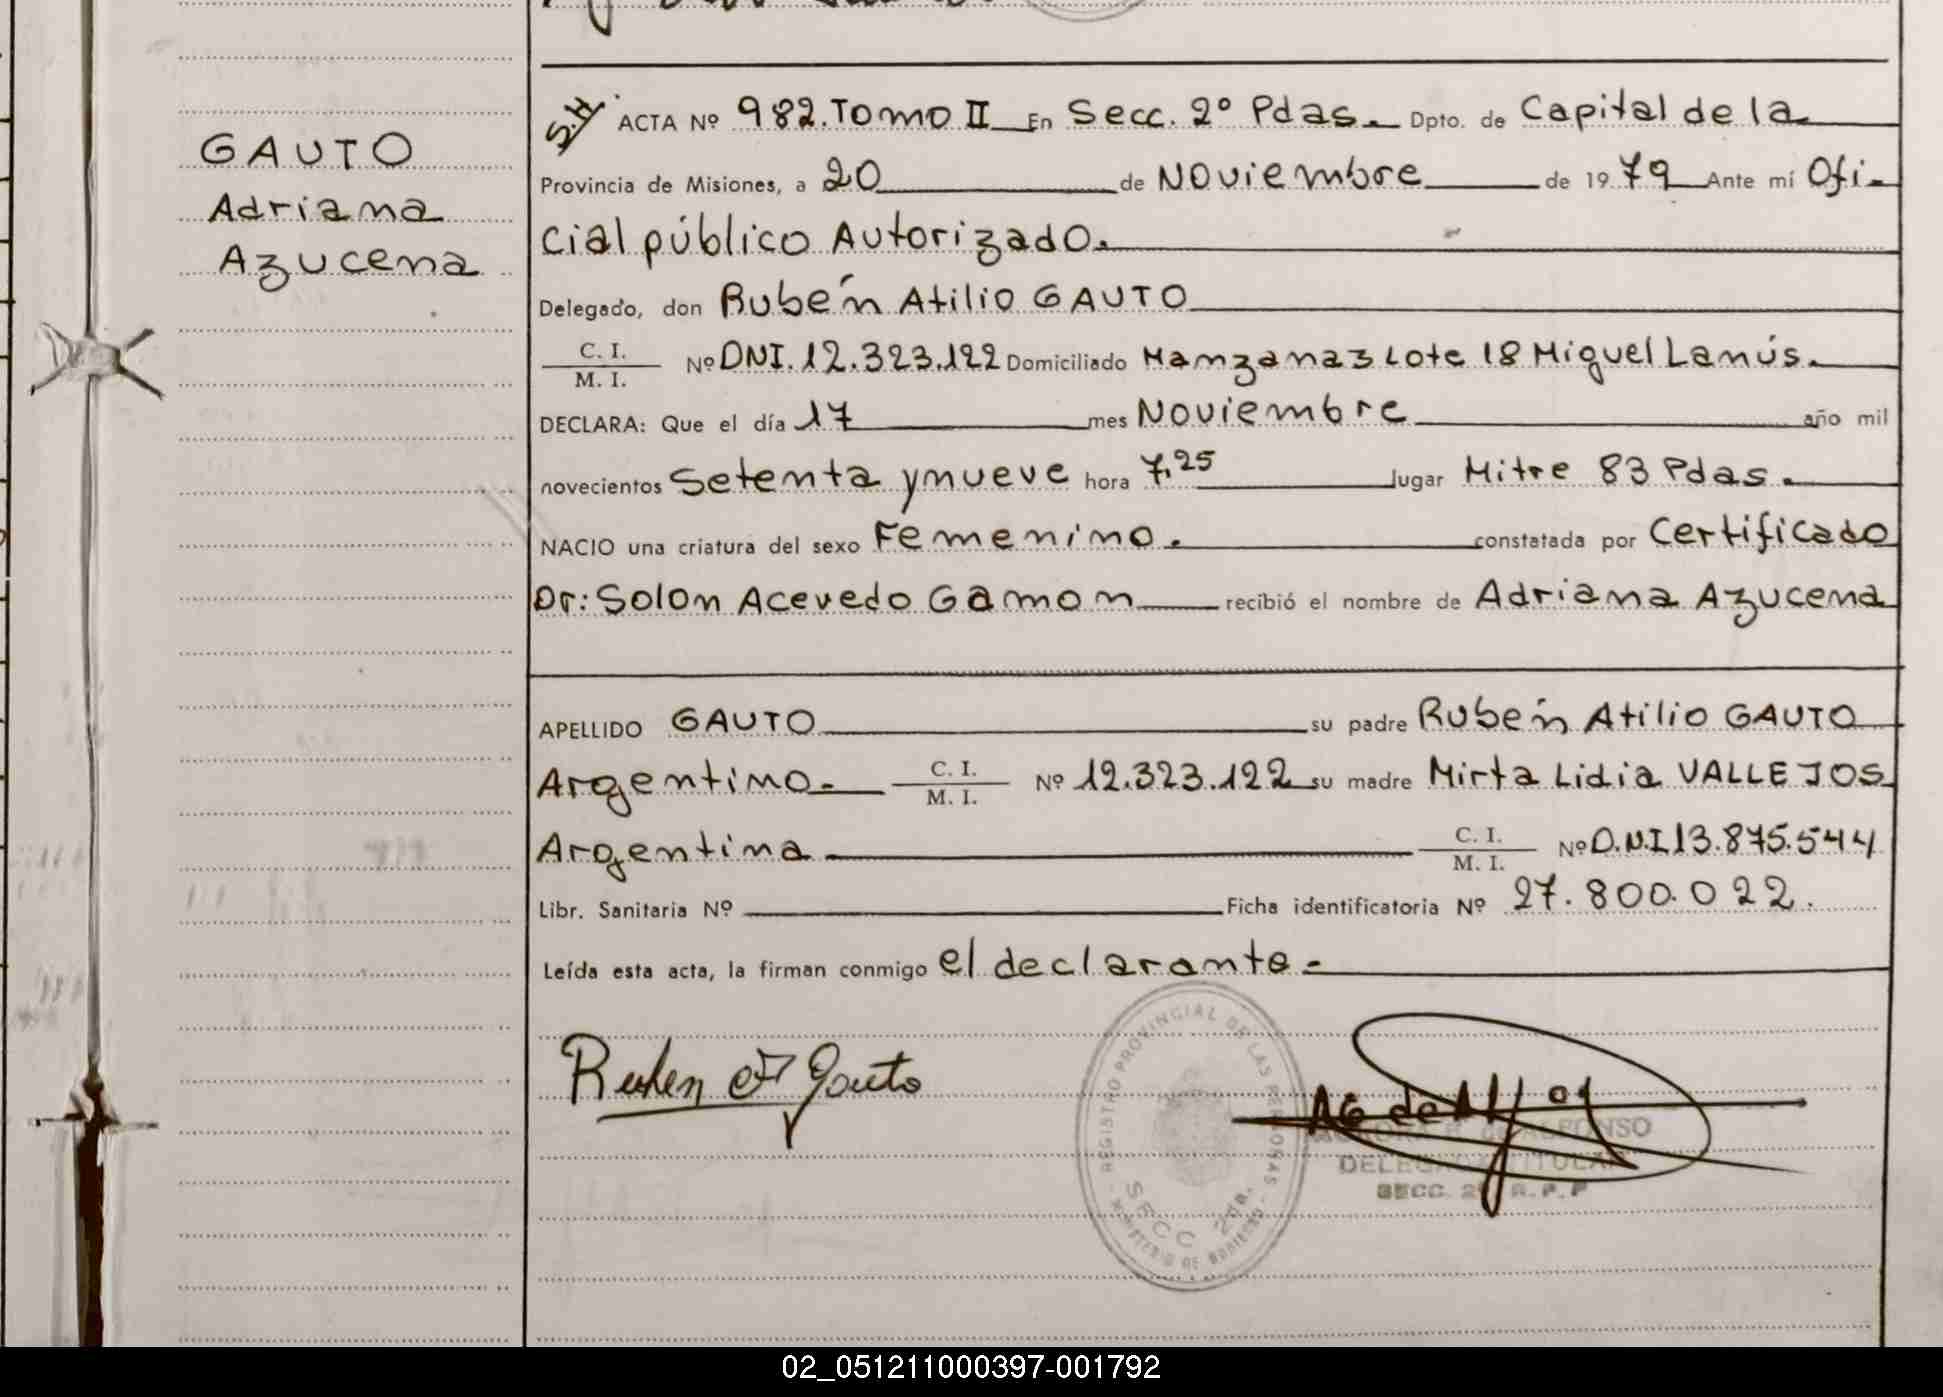 GAUTO
Adriana
Azucena
S.H ACTA Nº 982.Tomo II En Secc. 2º Pdas. Dpto. de Capital de la
Provincia de Misiones, a 20 de Noviembre de 1979 Ante mí Ofi-
cial público Autorizado.
Delegado, don Rubén Atilio GAUTO
C. I.
M. I. Nº DNI.12.323.122 Domiciliado Manzana 3 Lote 18 Miguel Lanús.
DECLARA: Que el día 17 mes Noviembre año mil
novecientos Setenta y nueve hora 7,25 lugar Mitre 83 Pdas.
NACIO una criatura del sexo Femenino. constatada por Certificado
Dr: Solon Acevedo Gamon recibió el nombre de Adriana Azucena
APELLIDO GAUTO su padre Rubén Atilio GAUTO
Argentino- C. I.
M. I. Nº 12.323.122 su madre Mirta Lidia VALLEJOS
Argentina C. I.
M. I. Nº D.N.I 13.875.544
Libr. Sanitaria Nº Ficha identificatoria Nº 27.800.022.
Leída esta acta, la firman conmigo el declarante-
Ruben A Gauto
REGISTRO PROVINCIAL DE LAS PERSONAS
SECC 2da.
MINISTERIO DE GOBIERNO
ALFONSO
DELEGADA TITULAR
SECC. 2ª R.P.P
02_051211000397-001792